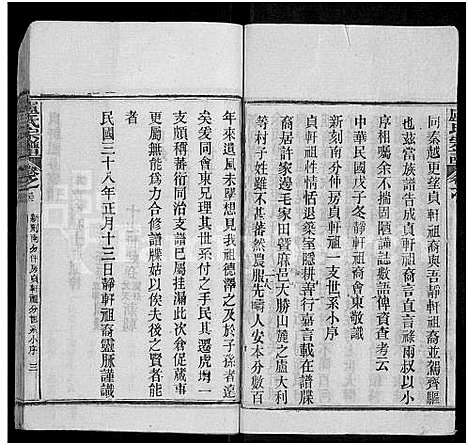 同秦越更望貞軒祖裔與吾靜軒祖裔並駕齊驅
也茲當族譜告成貞軒祖裔子禎雨叔以小
序相屬余不揣固陋謹誌數語俾資查考云
中華民國戊子冬靜軒祖裔會東敬識
新刻南分仲房貞軒祖一支世系小序
貞軒祖性情恬退樂室隱耕善行嘉言載在譜牒
裔居許邊毛家田暨麻邑大勝山麓之盧大利
等村子姓雖不甚蕃然農服先疇人安本分數百
年來遺風未墜想見我祖德澤之及於子孫者遠
矣爰同會東兄理其世系付之手民其還虎塆一
支頗稱蕃衍同治支譜已屬挂漏此次倉促蕆事
更屬無能為力合修譜牒姑以俟夫後之賢者能
者
民國三十八年正月十三日靜軒祖裔靈脈謹識
盧氏宗譜 卷之
新刻南分仲房貞軒祖一支世系小序 三